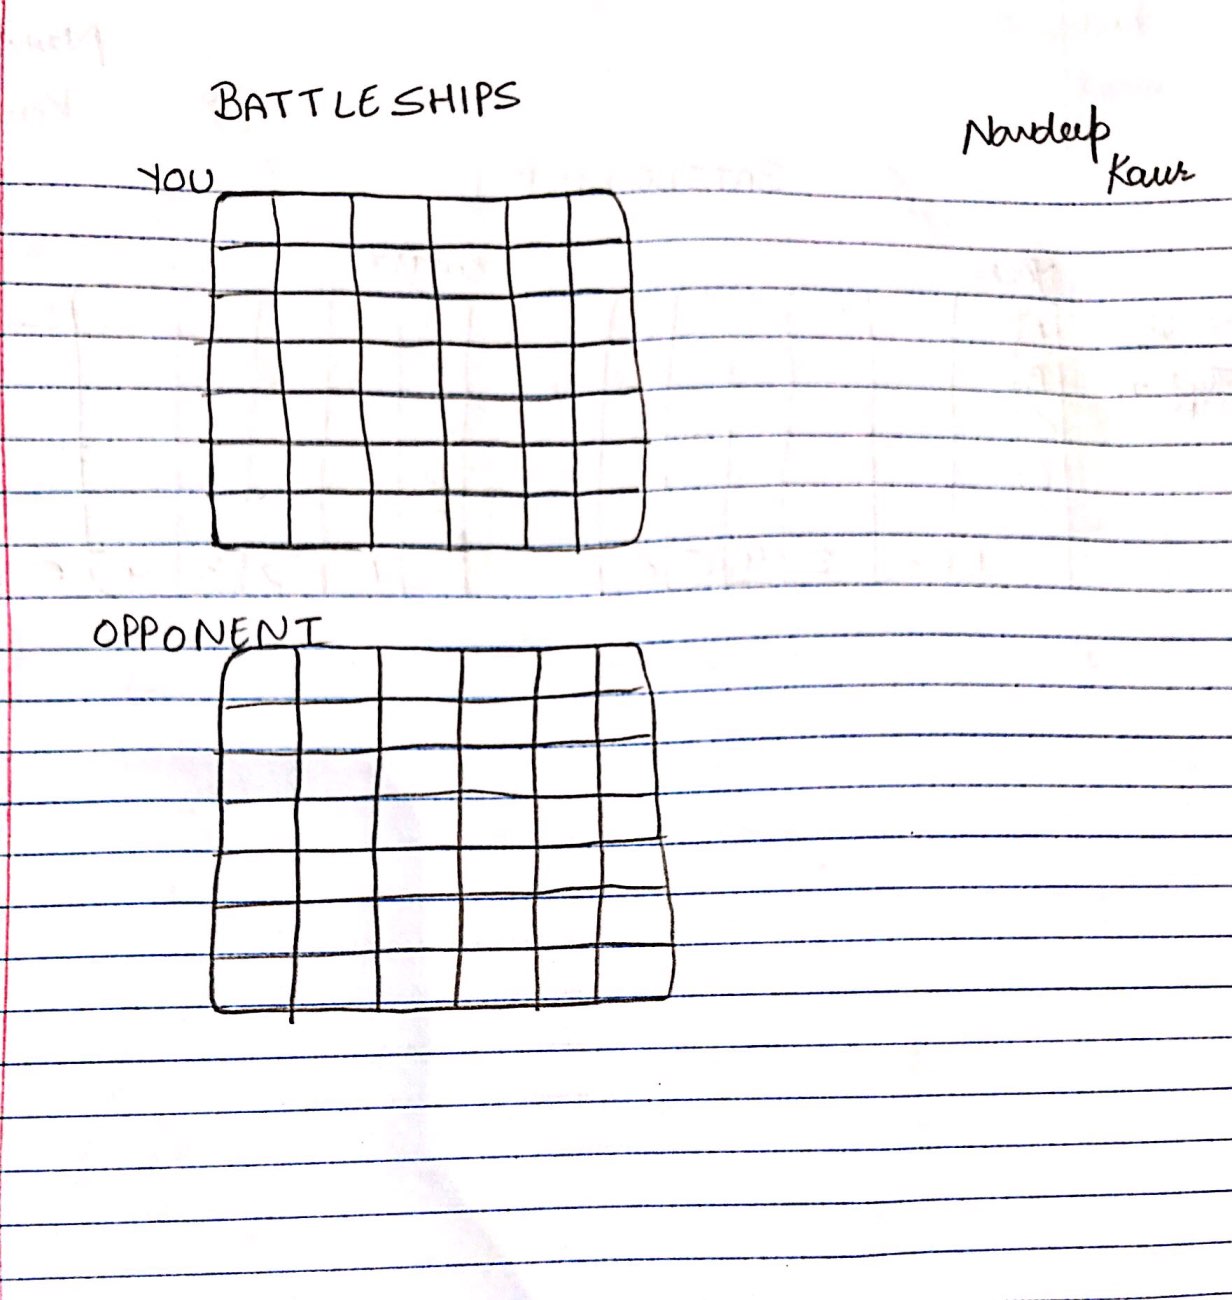 BATTLESHIPS
Navdeep
Kaur
YOU
OPPONENT